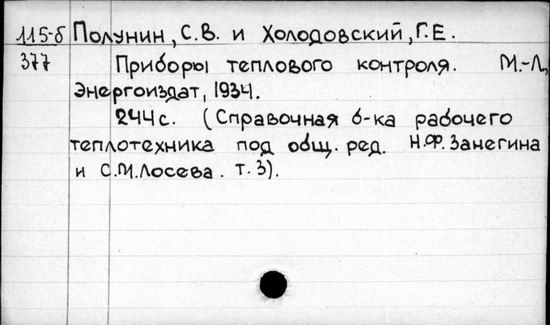 115-б Полунин, С.В. и Холодовский, Г.Е.
377 Приборы теплового контроля. М.-Л.,
Энергоиздат, 1934.
244с. (Справочная б-ка рабочего
теплотехника под общ. ред. Н.Ф.Занегина
и С.М.Лосева. т. 3).